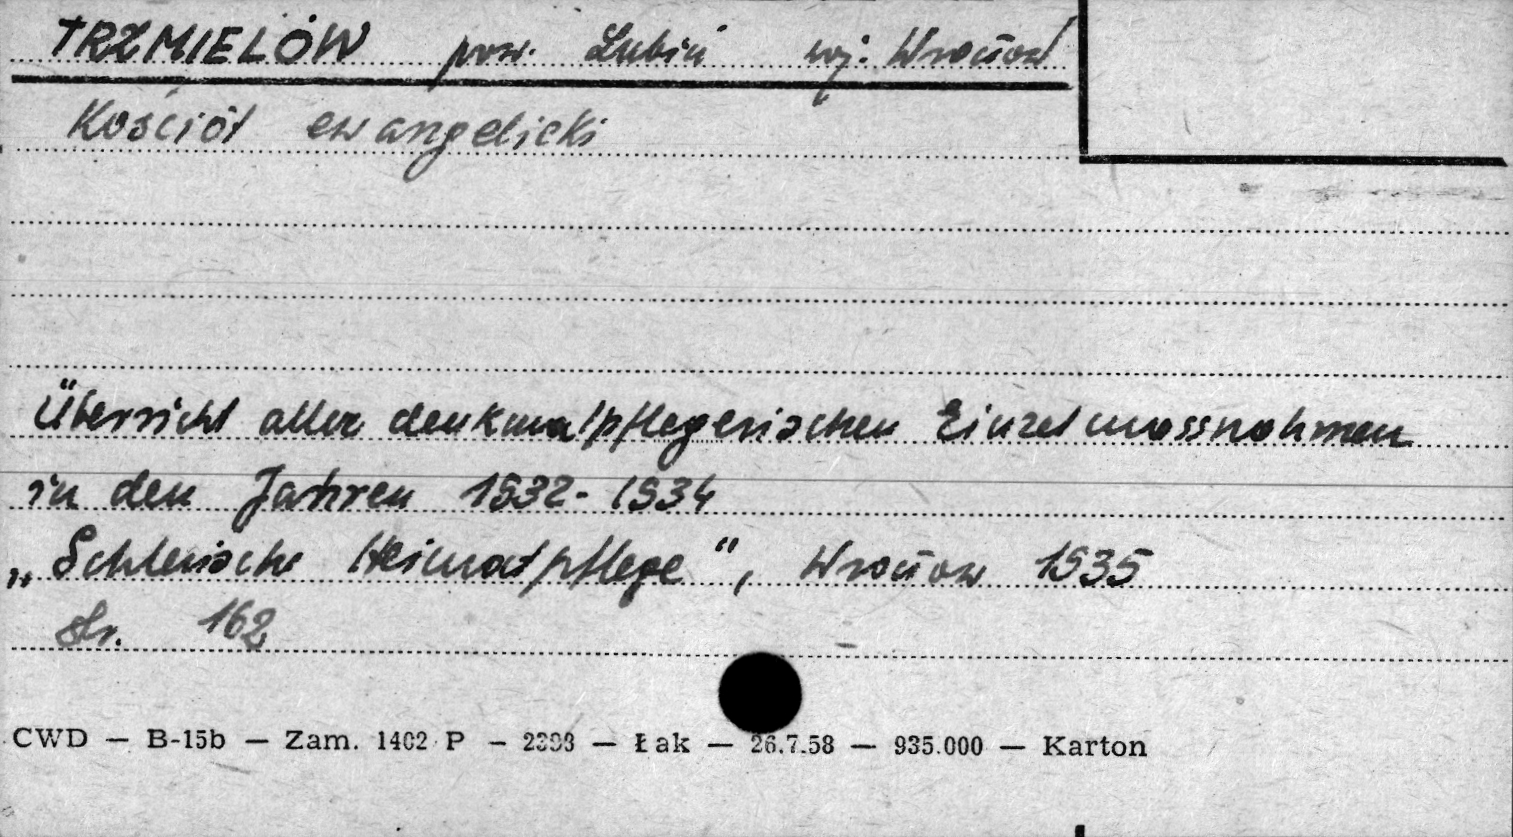 TRZMIELÓW pow. Lubin woj. Wrocław
Kościół ewangelicki
Übersicht aller denkmalpflegerischen Einzelmassnahmen
in den Jahren 1932-1934
„Schlesische Heimatpflege", Wrocław 1935
str. 162
CWD — B-15b — Zam. 1402 P — 2393 — Łak — 26.7.58 — 935.000 — Karton